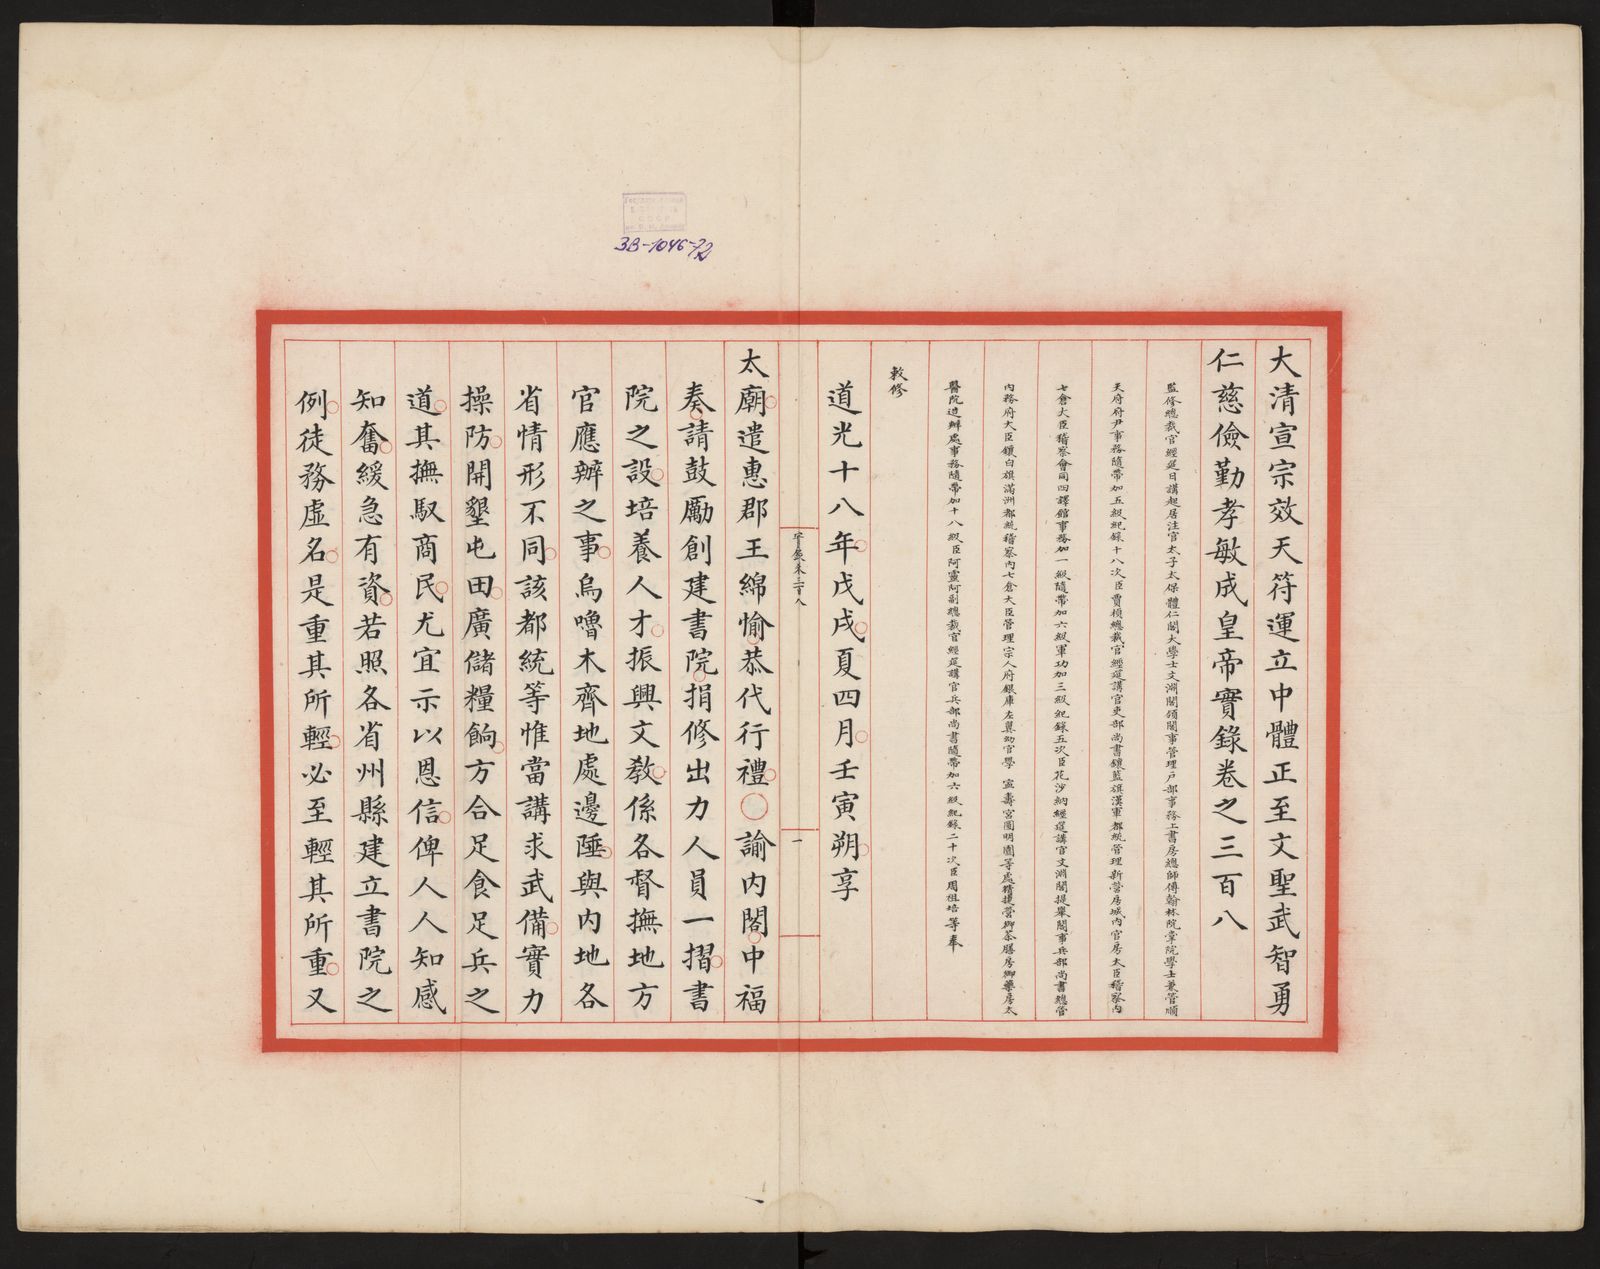 大清宣宗效天符運立中體正至文聖武智勇
仁慈儉勤孝敏成皇帝實錄卷之三百八
監修總裁官經筵日講起居注官太子太保體仁閣大學士文淵閣領閣事管理戶部事務上書房總師傅翰林院掌院學士兼管順
天府府尹事務隨帶加五級紀錄十八次臣賈楨總裁官經筵講官吏部尚書鑲藍旗漢軍都統管理新營房城內官房大臣稽察內
七倉大臣稽察會同四譯館事務加一級隨帶加六級軍功加三級紀錄五次臣花沙納經筵講官文淵閣提舉閣事兵部尚書總管
內務府大臣鑲白旗滿洲都統稽察內七倉大臣管理宗人府銀庫左翼幼官學 寧壽宮圓明園等處稽提營御茶膳房御藥房太
醫院造辦處事務隨帶加十八級臣阿靈阿副總裁官經筵講官兵部尚書隨帶加六級紀錄二十次臣周祖培等奉
敕修
道光十八年戊戌夏四月壬寅朔享
實錄卷三百八
一
太廟遣惠郡王綿愉恭代行禮○諭內閣中福
奏請鼓勵創建書院捐修出力人員一摺書
院之設培養人才振興文教係各督撫地方
官應辦之事烏嚕木齊地處邊陲與內地各
省情形不同該都統等惟當講求武備實力
操防開墾屯田廣儲糧餉方合足食足兵之
道其撫馭商民尤宜示以恩信俾人人知感
知奮緩急有資若照各省州縣建立書院之
例徒務虛名是重其所輕必至輕其所重又
СССР
3В-1046-72